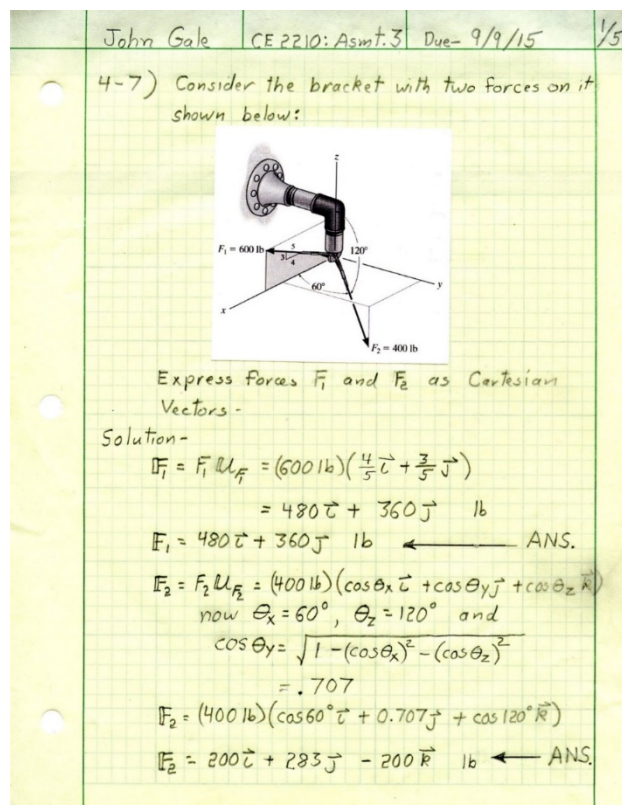 John Gale CE 2210: Asmt. 3 Due- 9/9/15 1/5
4-7) Consider the bracket with two forces on it
shown below:
z
F₁ = 600 lb
5
3
4
120°
60°
y
x
F₂ = 400 lb
Express forces F₁ and F₂ as Cartesian
Vectors -
Solution-
𝔽₁ = F₁ 𝕌_F₁ = (600 lb)(4/5 i⃗ + 3/5 j⃗)
= 480 i⃗ + 360 j⃗ lb
𝔽₁ = 480 i⃗ + 360 j⃗ lb ← ANS.
𝔽₂ = F₂ 𝕌_F₂ = (400 lb)(cosθx i⃗ + cosθy j⃗ + cosθz k⃗)
now θx = 60°, θz = 120° and
cosθy = √(1-(cosθx)² - (cosθz)²)
= .707
𝔽₂ = (400 lb)(cos60° i⃗ + 0.707 j⃗ + cos120° k⃗)
𝔽₂ = 200 i⃗ + 283 j⃗ - 200 k⃗ lb ← ANS.